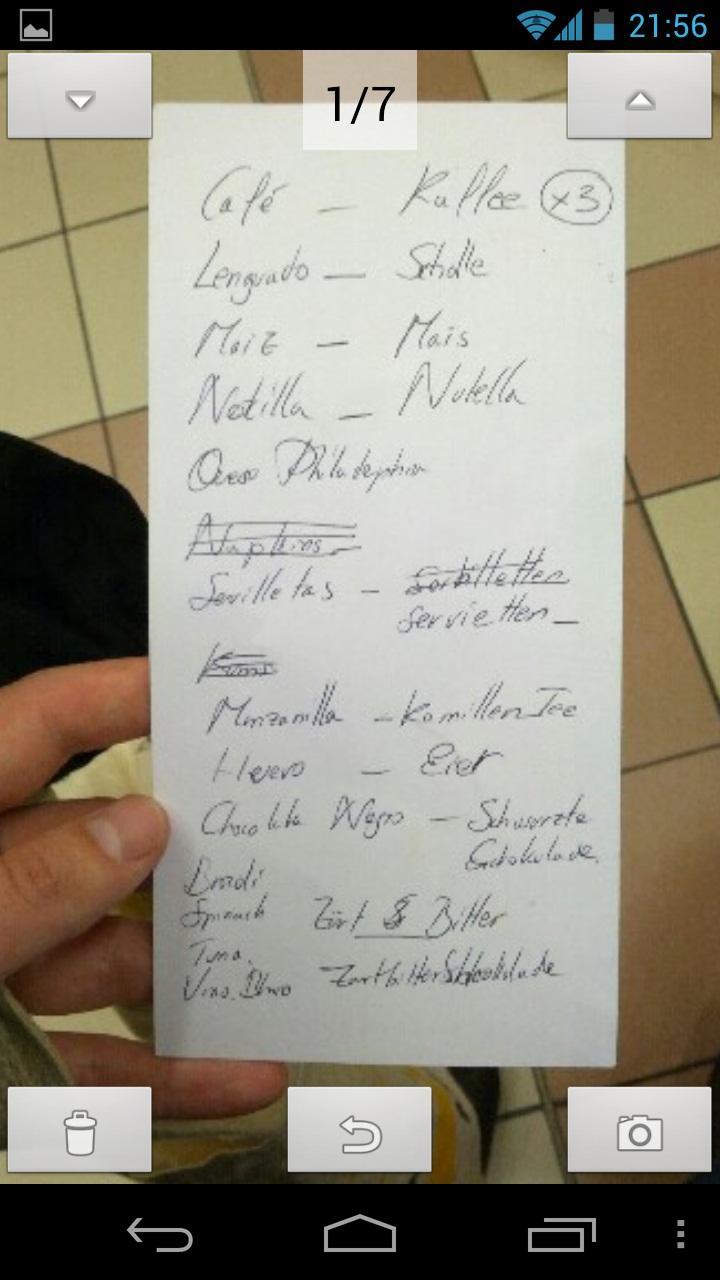 21:56
1/7
Café — Kaffee x3
Lenguado — Scholle
Maiz — Mais
Notilla — Nutella
Queso Philadephia
Napkins
Servilletas — Serbilletten
Servietten
Manzanilla — Kamillen Tee
Huevo — Eier
Chocolate Negro — Schwarzte
Schokolade
Spinach Zart & Bitter
Tuna.
Vino Zartbitter